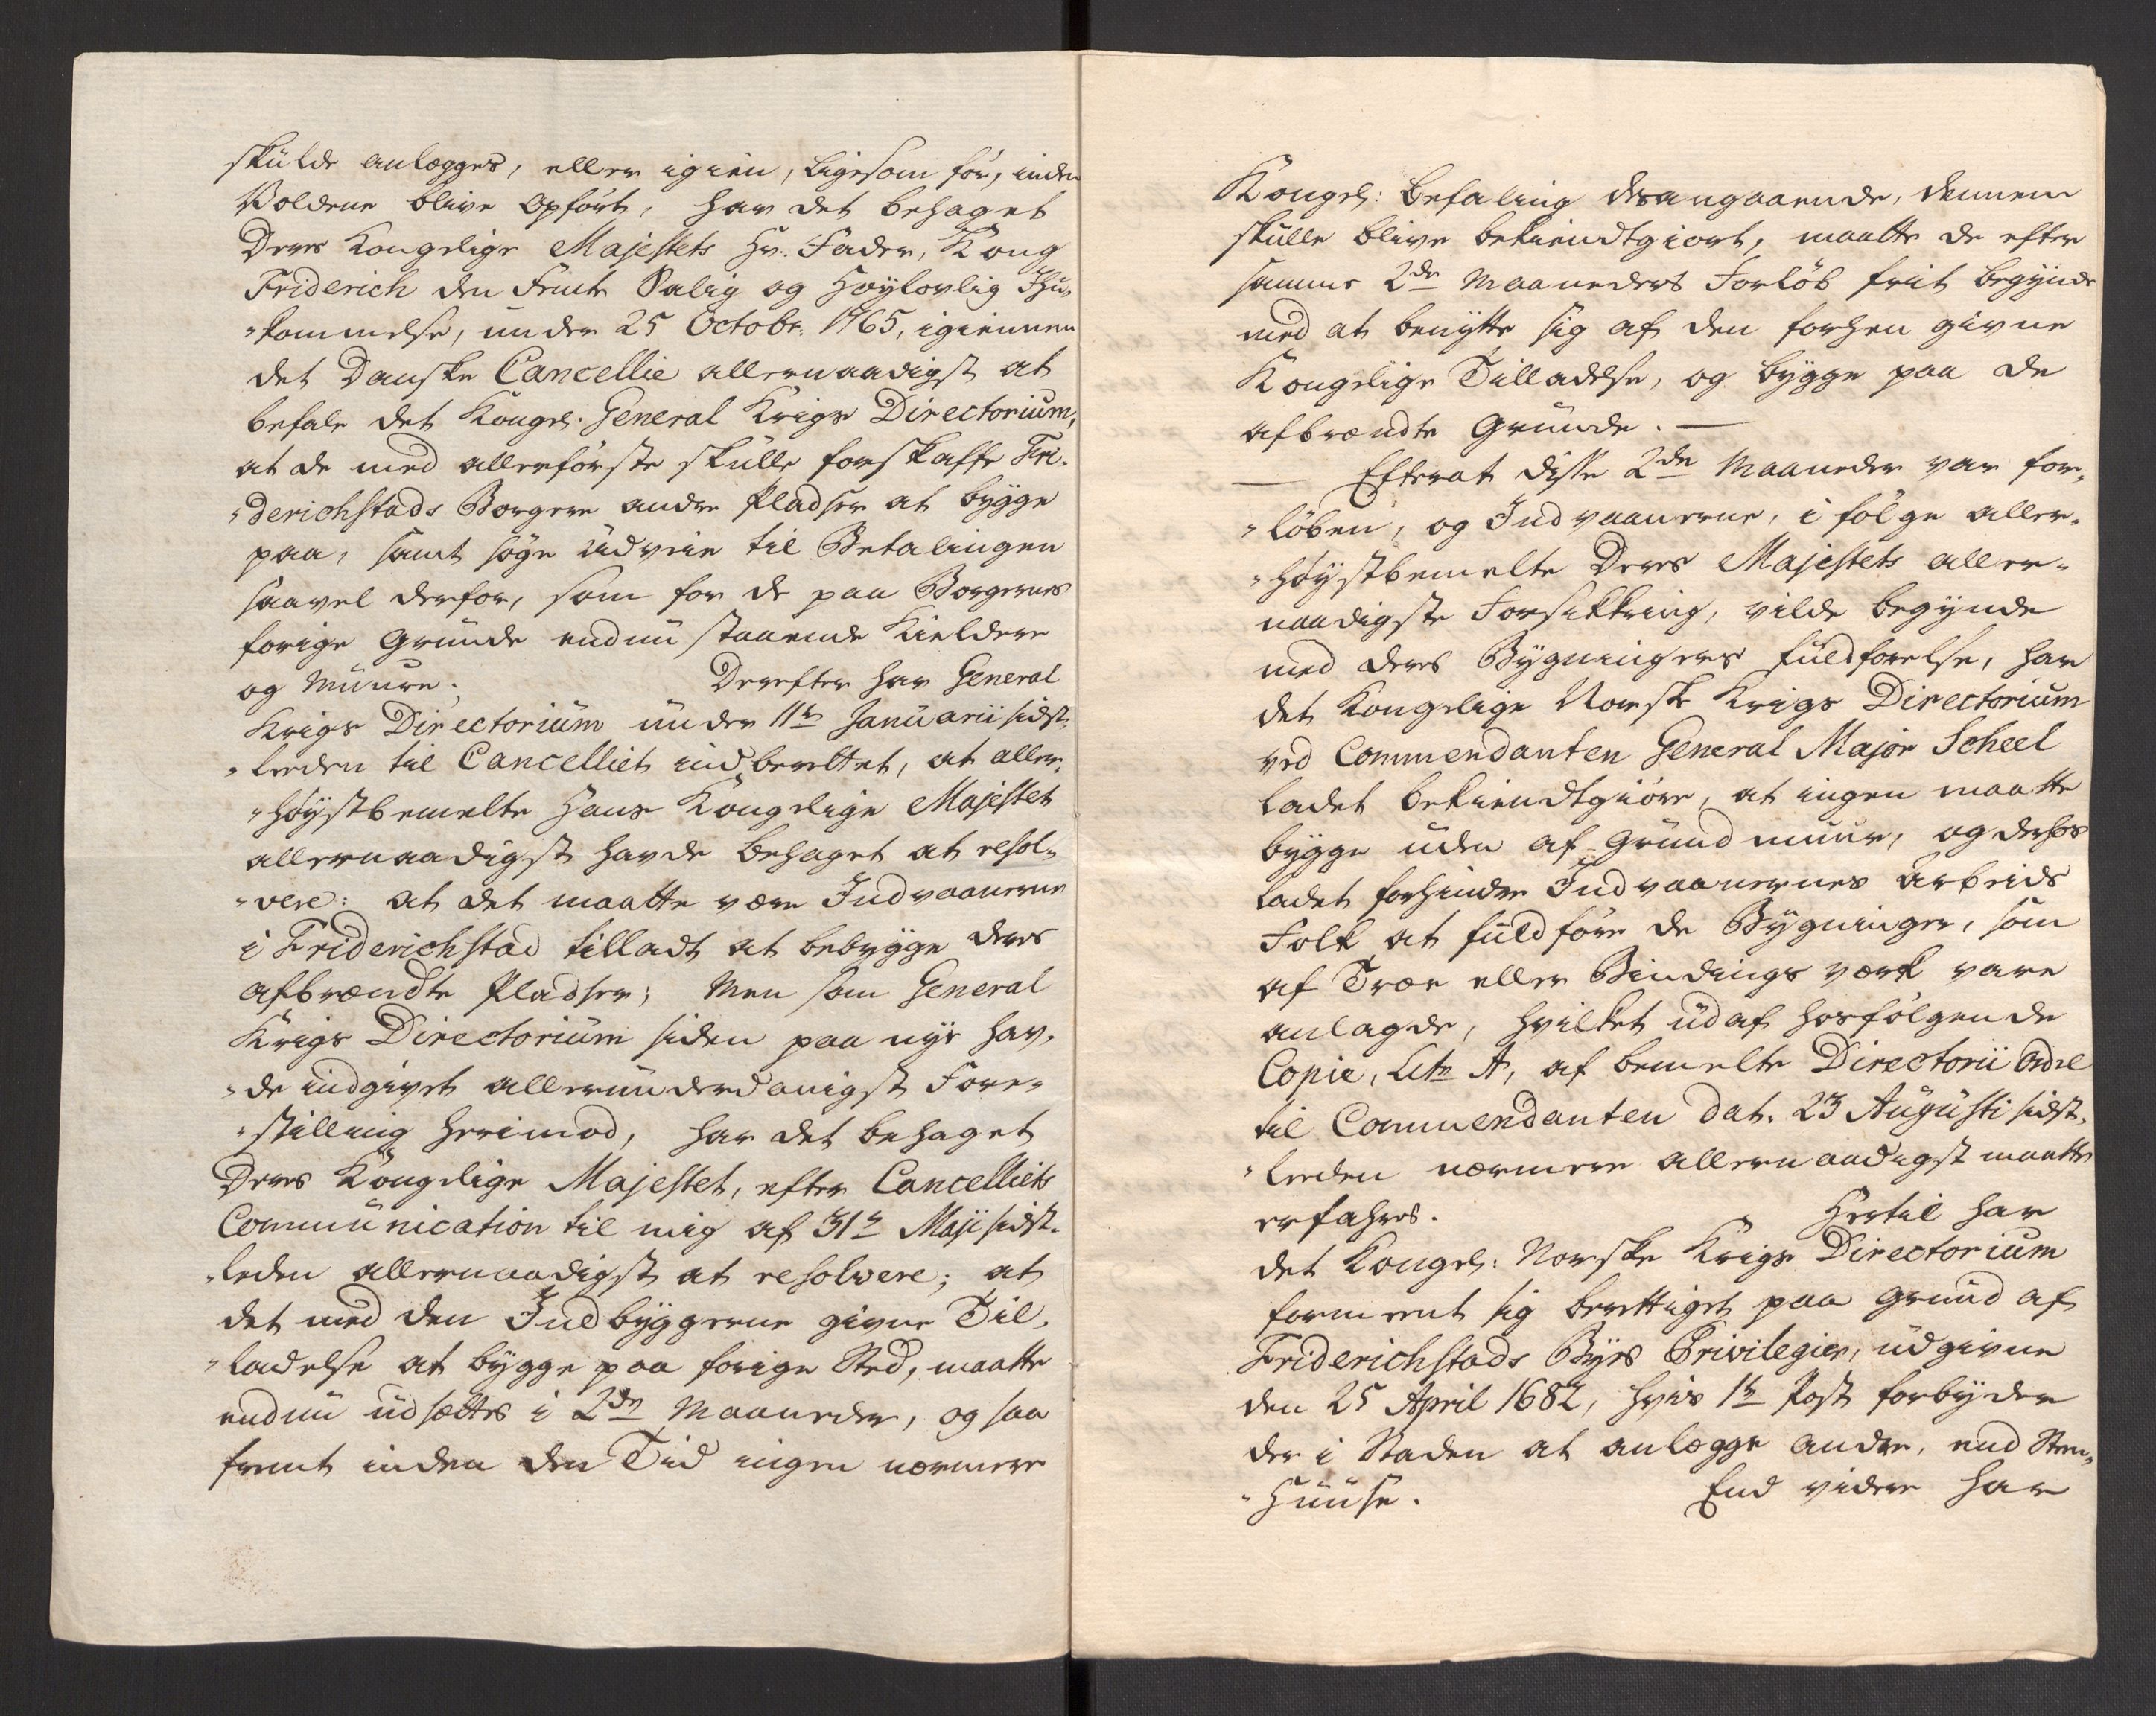 skulde anlægges, eller igien, ligesom før, inden
Voldene blive opført, har det behaget
Deres Kongelige Majestets Hr. Fader, Kong
Friderich den Femte Salig og Høylovlig Ihu-
"kommelse, under 25 Octobr: 1765, igiennem
det Danske Cancellie allernaadigst at
befale det Kongel. General Krigs Directorium,
at de med allerførste skulle forskaffe Fri-
"derichstads Borgere andre Pladser at bygge
paa, samt søge Udveie til Betalingen
saavel derfor, som for de paa Borgernes
forige Grunde endnu staaende Kieldere
og Muure. Derefter har General
Krigs Directorium under 11te Januarii sidst-
"leeden til Cancelliet indberettet, at aller-
"høystbemelte Hans Kongelige Majestet
allernaadigst havde behaget at resol-
"vere: at det maatte være Indvaanerne
i Friderichstad tilladt at bebygge deres
afbrændte Pladser; Men som General
Krigs Directorium siden paa nye hav-
"de indgivet allerunderdanigst Fore-
"stilling herimod, har det behaget
Deres Kongelige Majestet, efter Cancelliets
Communication til mig af 31te Maji sidst-
"leden allernaadigst at resolvere; at
det med den Indbyggerne givne Til-
"ladelse at bygge paa forige Sted, maatte
endnu udsættes i 2de Maaneder, og saa
fremt inden den Tid ingen nærmere
Kongel: Befaling desangaaende, dennem
skulle blive bekiendtgiort, maatte de efter
samme 2de Maaneders Forløb friit begynde
med at benytte sig af den forhen givne
Kongelige Tilladelse, og bygge paa de
afbrændte Grunde. —
— Efterat disse 2de Maaneder var for-
"løben, og Indvaanerne, i følge aller-
"høystbemelte Deres Majestets aller-
naadigste Forsikkring, vilde begynde
med deres Bygningers fuldførelse, har
det Kongelige Norske Krigs Directorium
ved Commendanten General Major Scheel
ladet bekiendtgiøre, at ingen maatte
bygge uden af Grundmuur, og derhos
ladet forhindre Indvaanernes Arbeids
Folk at fuldføre de Bygninger, som
af Træe eller Bindings værk vare
anlagde, hvilket udaf hosfølgende
Copie, Litr A, af bemelte Directorii Ordre
til Commendanten dat. 23 Augusti sidst-
"leeden nærmere allernaadigst maatte
erfahres. Hertil har
det Kongel: Norske Krigs Directorium
forment sig berettiget paa Grund af
Friderichstads Byes Privilegier, udgivne
den 25 April 1682, hvis 1te Post forbyder
der i Staden at anlægge andre, end Steen-
"Huuse. End videre har